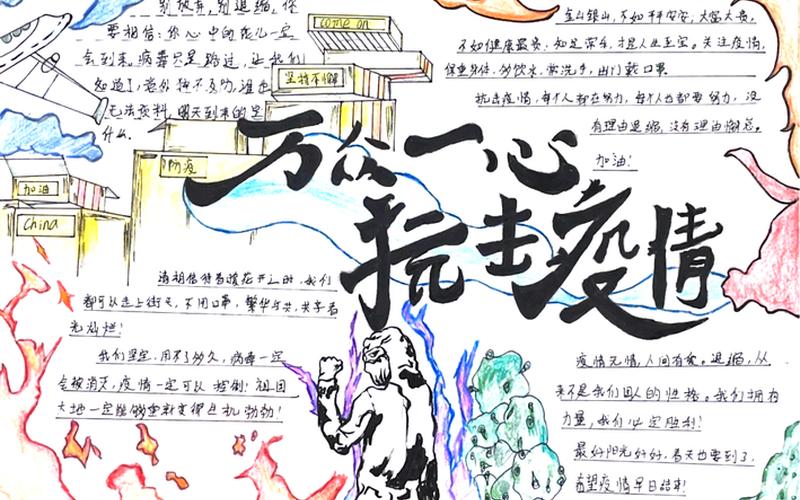 别放弃，别退缩，你
要相信：你心中的花儿一定
会到来。病毒只是路过，让我们
知道了，意外
无法预料，明天到来的是
什么。
come on
坚持不懈
防疫
加油
China
万众一心
抗击疫情
金山银山，不如平平安安，大富大贵，
不如健康最贵，知足常乐，才是人生至宝。关注疫情，
保重身体，多饮水，常洗手，出门戴口罩。
抗击疫情，每个人都在努力，每个人也都要努力，没
有理由退缩，没有理由懈怠。
加油！
请相信待春暖花开之时，我们
都可以走上街头，不用口罩，繁华与共，共享春
光灿烂！
我们坚定，用不了多久，病毒一定
会被消灭，疫情一定可以控制！祖国
大地一定能够重新变得生机勃勃！
疫情无情，人间有爱。退缩，从
来不是我们国人的性格。我们拥有
力量，我们必定胜利！
最好阳光好好，春天也要到了，
希望疫情早日结束！